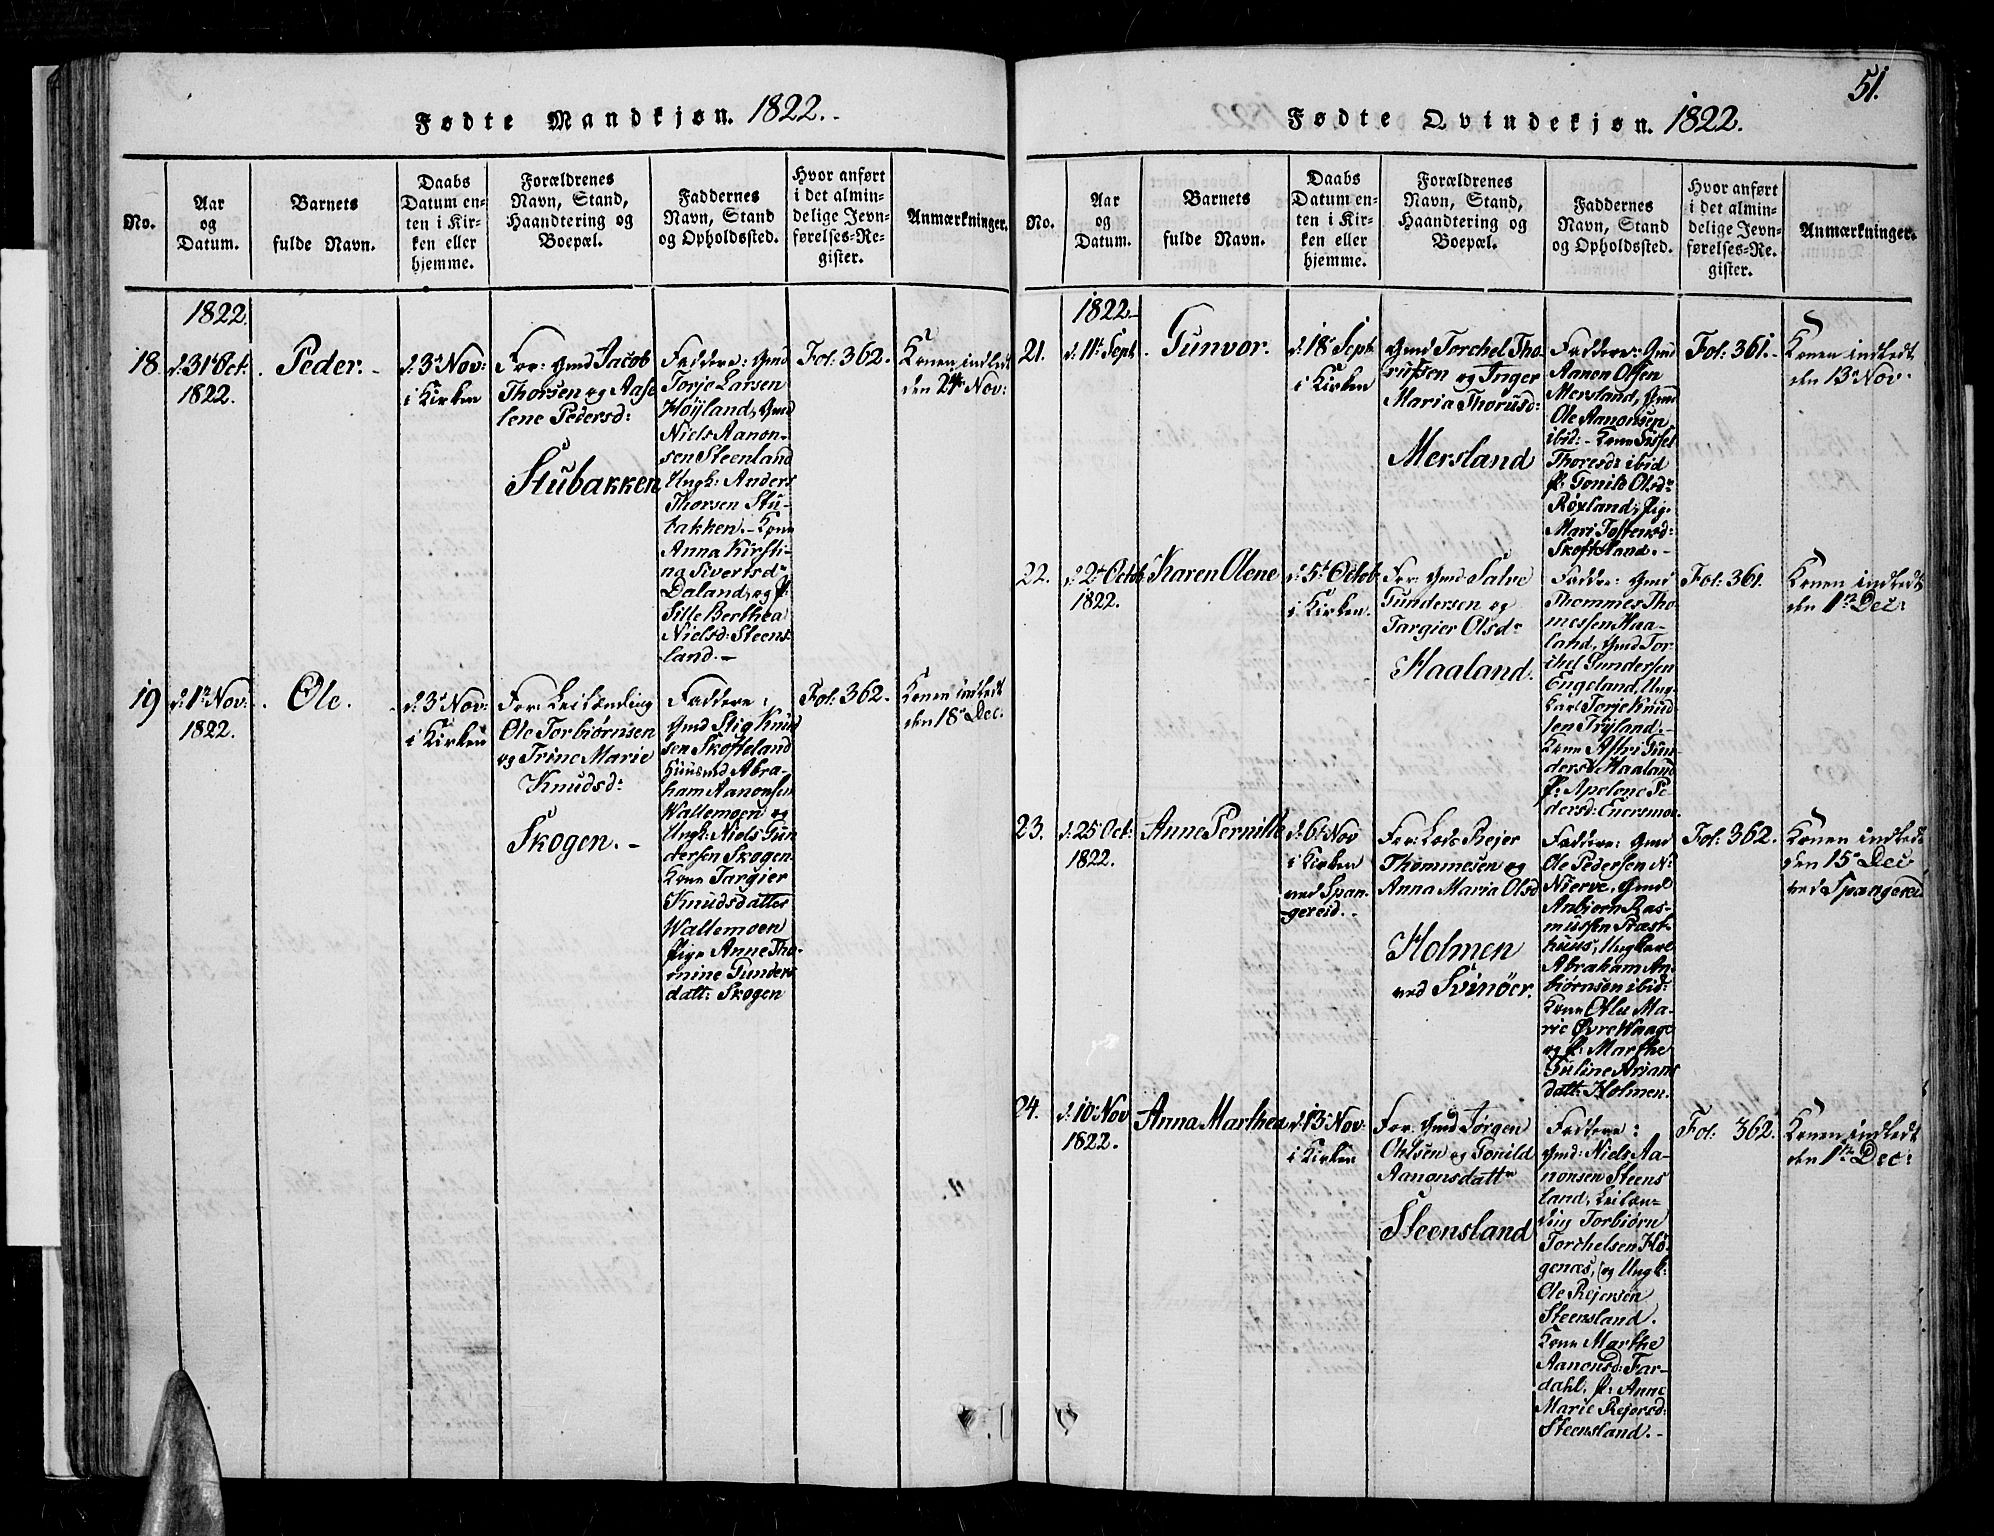 Fødte Mandkjøn. 1822.
No.
Aar
og
Datum.
Barnets
fulde Navn.
Daabs
Datum en-
ten i Kir-
ken eller
hjemme.
Forældrenes
Navn, Stand,
Haandtering og
Boepæl.
Faddernes
Navn, Stand
og Opholdssted.
Hvor anført
i det almin-
delige Jevn-
førelses-Re-
gister.
Anmærkninger.
1822.
18.
d: 31t Oct.
1822.
Peder.
d: 3d Nov:
i Kirken
For: Gmd Jacob
Thorsen og Aase
lene Pedersd:
Stubakken
Faddere: Gmd
Torje Larsen
Höyland, Gmd
Niels Aanon-
sen Steenland
Ungk: Anders
Thorsen Stu-
bakken. Kone
Anna Kirsti-
na Sivertsd:
Daland, og P:
Sille Berthea
Nielsd: Steens
land.
Fol: 362.
Konen indledt
den 24de Nov:
19
d: 1t Nov:
1822.
Ole.
d: 3d Nov:
i Kirken
For: Leilænding
Ole Torbiørnsen
og Trine Marie
Knudsd:
Skogen.
Faddere:
Gmd Stig Knud
sen Skofteland
Huusmd Abra-
ham Aanonsen
Wallemoen og
Ungk: Niels Gun
dersen Skogen.
Kone Targier
Knudsdatter
Wallemoen
Pige Anne Tho-
mine Gunders
datt: Skogen
Fol: 362.
Konen indledt
den 18d Dec:
51.
Fødte Qvindekjøn. 1822.
No.
Aar
og
Datum.
Barnets
fulde Navn.
Daabs
Datum en-
ten i Kir-
ken eller
hjemme.
Forældrenes
Navn, Stand,
Haandtering og
Boepæl.
Faddernes
Navn, Stand
og Opholdssted.
Hvor anført
i det almin-
delige Jevn-
førelses-Re-
gister.
Anmærkninger.
1822
21.
d: 11t Sept.
Gunvor.
d: 18d Sept
i Kirken
Gmd Torchel Tho
rusen og Inger
Maria Thorusd:
Mersland
Faddere: Gmd
Aanen Olsen
Mersland, Gmd
Ole Aanonsen
ibid: Kone Sissel
Thoresd: ibid
P: Gonild Olsd:
Röxland, Pig.
Mari Tostensd:
Skofteland.
Fol: 361.
Konen indledt
den 13d Nov.
22.
d: 2d Octob
1822.
Karen Olene
d: 5t Octob
i Kirken.
For: Gmd Salve
Gundersen og
Targier Olsd:
Haaland.
Faddere: Gmd
Thommes Tho-
mesen Haa-
land, Gmd Tor-
chel Gundersen
Engeland, Ung
karl Torje Knud
sen Tryland.
Kone Astri Gun-
dersd: Haaland
P: Apelone Pe-
dersd: Enersmoe.
Fol: 361.
Konen indledt
den 1te Dec:
23.
d: 25 Oct:
1822.
Anne Pernille
d: 6t Nov
i Kirken
ved Span-
gereid.
For: Lods Rejer
Thommesen og
Anna Maria Olsd
Holmen
ved Svinöer.
Faddere: Gmd
Ole Pedersen N:
Nierve, Gmd
Anbiørn Ras-
mussen Præst-
huus, Ungkarl
Abraham An-
biørnsen ibid:
Kone Ma-
rie Øvre Waage
og P: Marthe
Guline Arians
datt: Holmen.
Fol: 362.
Konen indledt
den 15d Dec
ved Spangereid
24.
d: 10d Nov
1822.
Anna Marthea
d: 13d Nov:
i Kirken
For: Gmd Jørgen
Ohlsen og Gonild
Aanonsdattr
Steensland
Faddere:
Gmd: Niels Aa-
nonsen Steens
land, Leilæn-
ding Torbiørn
Torchelsen Hö-
genæs, og Ungk:
Ole Rejersen
Steensland.
Kone Marthe
Aanonsd: Far-
dahl, P: Anne
Marie Rejersd:
Steensland.
Fol: 362.
Konen indledt
den 1te Dec: